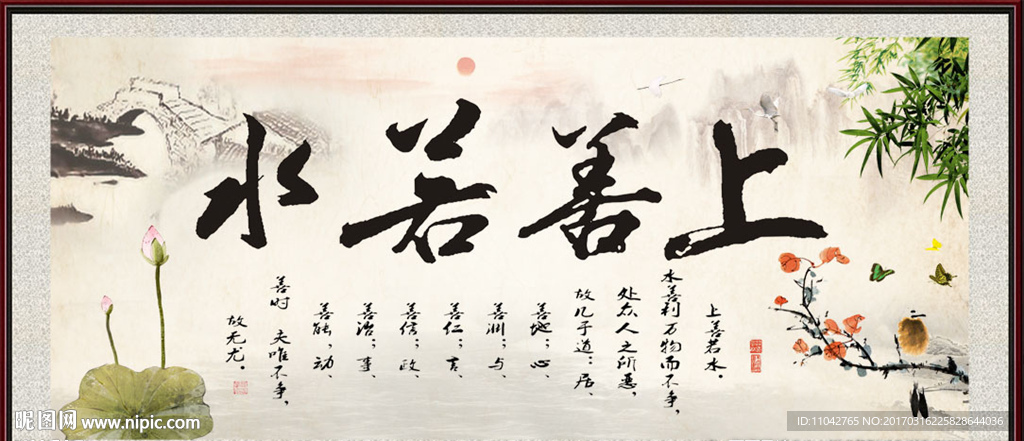 上善若水
上善若水。
水善利万物而不争，
处众人之所恶，
故几于道；居、
善地；心、
善渊；与、
善仁；言、
善信；政、
善治；事、
善能，动、
善时 夫唯不争，
故无尤。
昵图网 www.nipic.com
ID:11042765 NO:20170316225828644036